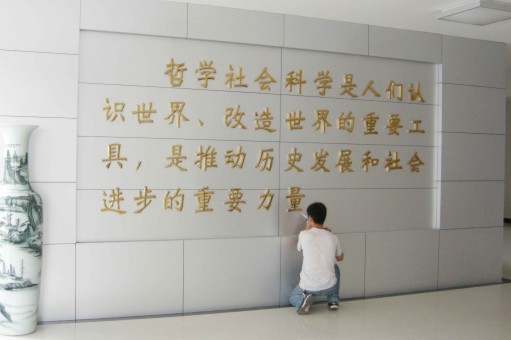 哲学社会科学是人们认
识世界、改造世界的重要工
具，是推动历史发展和社会
进步的重要力量